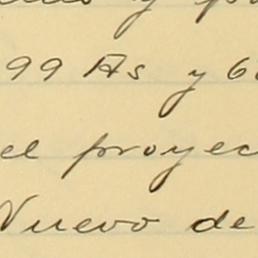 y
99 As y 6
el proyec
Nuevo de